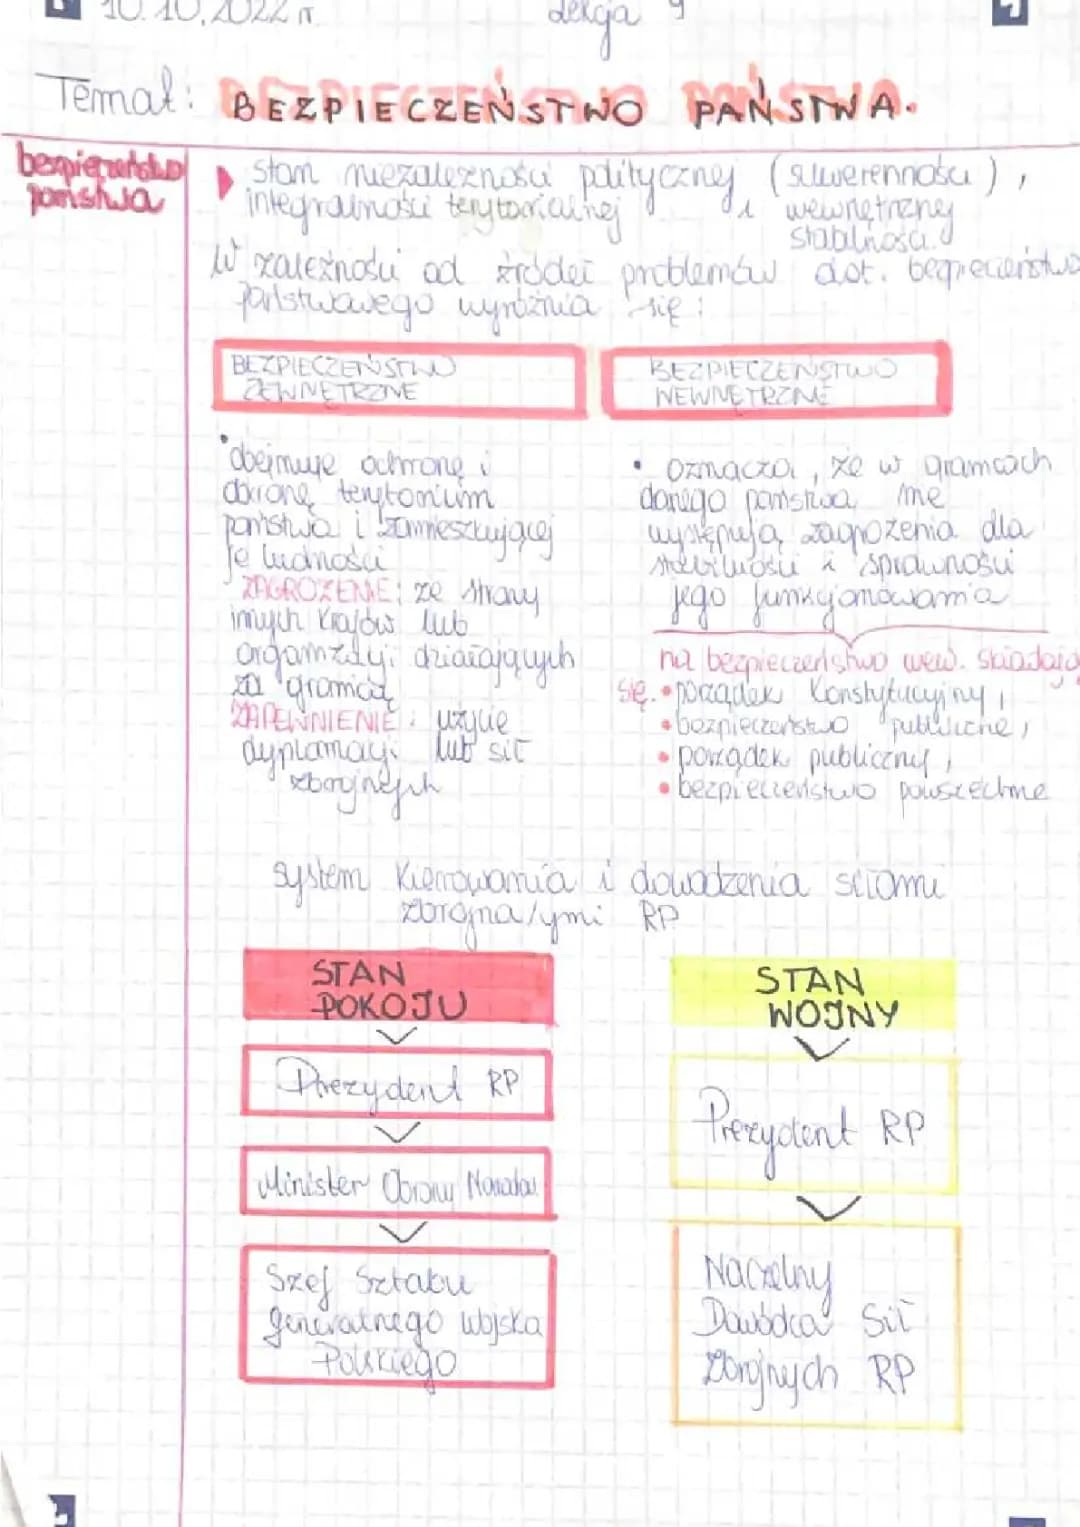 10.10.2022 r.
Lekcja 9
Temat: BEZPIECZEŃSTWO PAŃSTWA.
bezpieczeństwo
państwa
stan niezależności politycznej (suwerenności),
integralności terytorialnej i wewnętrznej
stabilności.
W zależności od źródeł problemów dot. bezpieczeństwa
państwowego wyróżnia się:
BEZPIECZEŃSTWO
ZEWNĘTRZNE
• obejmuje ochronę i
obronę terytorium
państwa i zamieszkującej
je ludności
ZAGROŻENIE: ze strony
innych krajów lub
organizacji działających
za granicą
ZAPEWNIENIE: użycie
dyplomacji lub sił
zbrojnych
BEZPIECZEŃSTWO
WEWNĘTRZNE
• oznacza, że w granicach
danego państwa nie
występują zagrożenia dla
stabilności i sprawności
jego funkcjonowania
na bezpieczeństwo wew. składają
się: • porządek konstytucyjny,
• bezpieczeństwo publiczne,
• porządek publiczny,
• bezpieczeństwo powszechne
system kierowania i dowodzenia siłami
zbrojna/ymi RP
STAN
POKOJU
Prezydent RP
Minister Obrony Narodow.
Szef Sztabu
generalnego Wojska
Polskiego
STAN
WOJNY
Prezydent RP
Naczelny
Dowódca Sił
Zbrojnych RP